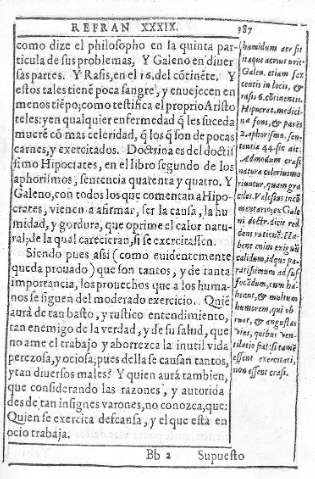 REFRAN XXXIX. 187
como dize el philosopho en la quinta par-
ticula de sus problemas, Y Galeno en diuer
sas partes. Y Rasis, en el 16. del cõtinẽte. Y
estos tales tienẽ poca sangre, y enuejecen en
menos tiẽpo; como testifica el proprio Aristo
teles: y en qualquier enfermedad q̃ les suceda
muerẽ cõ mas celeridad, q̃ los q̃ son de pocas
carnes, y exercitados. Doctrina es del doctis
simo Hipocrates, en el libro segundo de los
aphorismos, sentencia quarenta y quatro. Y
Galeno, con todos los que comentan a Hipo
crates, vienen a afirmar, ser la causa, la hu
midad, y gordura, que oprime el calor natu-
ral; de la qual carecieran, si se exercitassen.
Siendo pues assi (como euidentemente
queda prouado) que son tantos, y de tanta
importancia, los prouechos que a los huma-
nos se siguen del moderado exercicio. Quiẽ
aurà de tan basto, y rustico entendimiento,
tan enemigo de la verdad, y de su salud, que
no ame el trabajo y aborrezca la inutil vida
perezosa, y ociosa; pues della se causan tantos,
y tan diuersos males? Y quien aurà tambien,
que considerando las razones, y autorida
des de tan insignes varones, no conozca, que:
Quien se exercita descansa, y el que està en
ocio trabaja.
Bb 2 Supuesto
humidum aer sit
itaque
Galen. etiam sex
centis in locis, &
rasis 6. cõtinentis.
Hipocrat. medici-
ne fons, & paris
2. aphorism. sen-
tentia 44. sic ait.
Admodum crasi
natura celerius mo
riuntur, quam gra
ciles. Vbi
mentarior, ex Gale
ni doctrina sic red
dens ratione. Ha-
bent enim exiguũ
calidum, idque pa
ratissimum ad suf
focãdum, cum ha
beant, & multum
humorem, qui ob
ruat, & angustas
vias, quibus ven-
tilatio fiat: si tamẽ
essent exercitati,
non essent crasi.